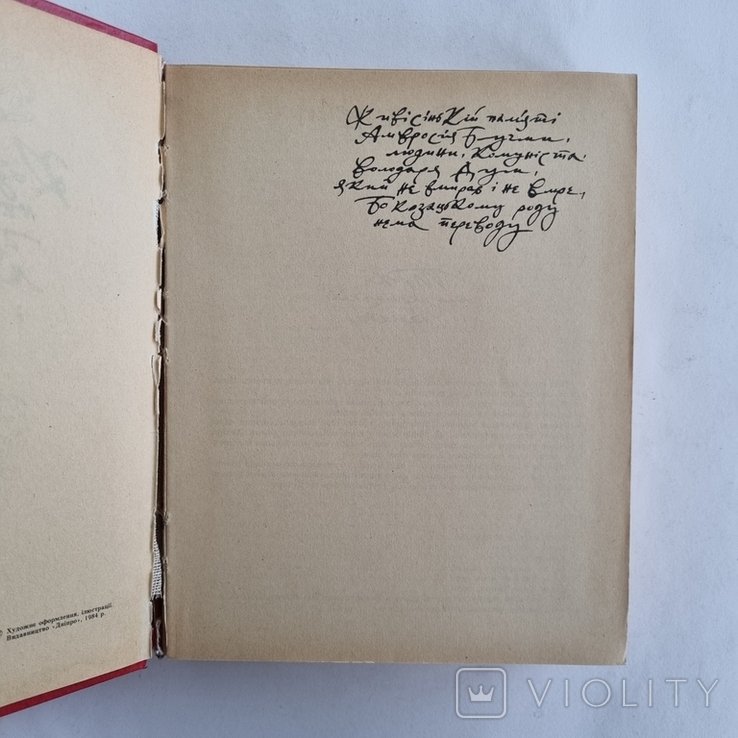 Живісінькій пам'яті
Амвросія Бучми,
людини, комуніста,
володаря Дум,
який не вмирав і не вмре,
Бо козацькому роду
нема переводу
© Художнє оформлення, ілюстрації.
Видавництво «Дніпро», 1984 р.
VIOLITY